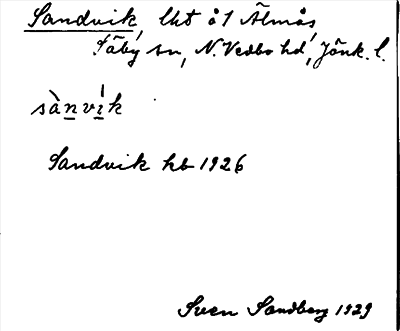 Sandvik, lht å 1 Älmås
Säby sn, N. Vedbo hd, Jönk. l.
sànvík
Sandvik hb 1926
Sven Sandberg 1929